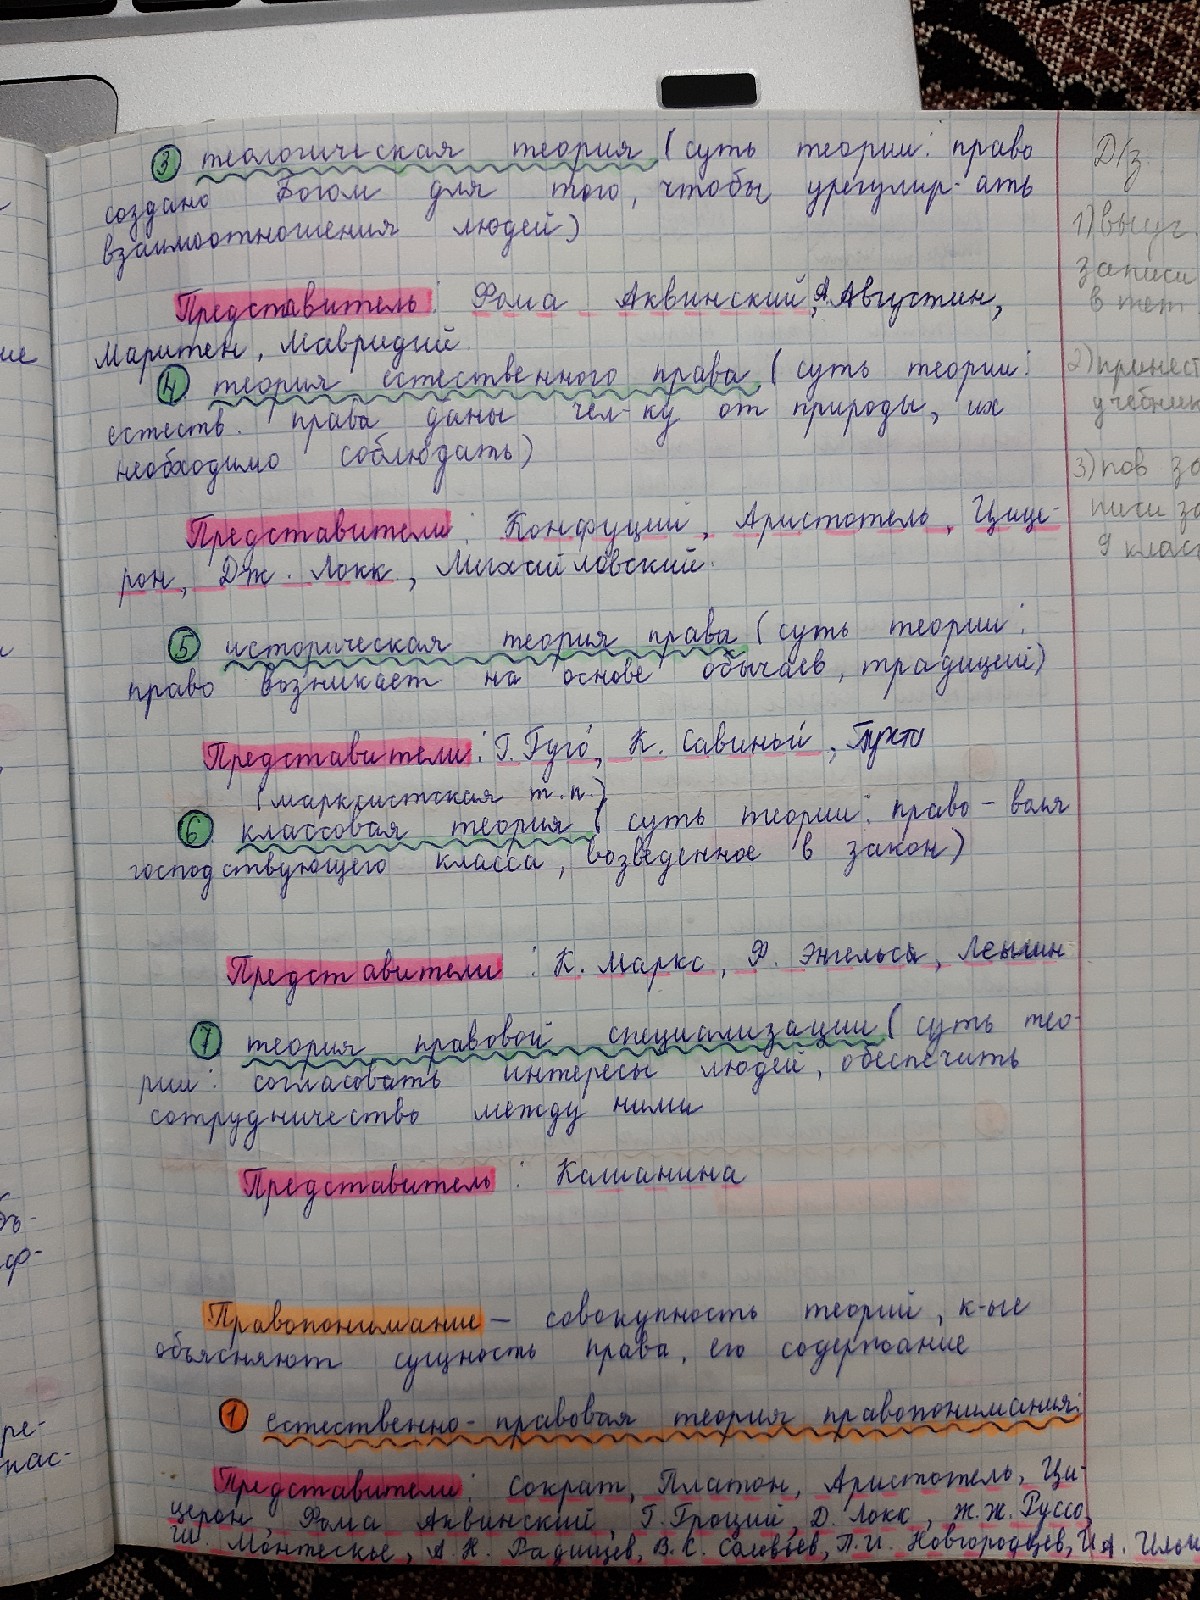 ③ теологическая теория (суть теории: право
создано Богом для того, чтобы урегулир-ать
взаимоотношения людей)
Представитель: Фома Аквинский, А. Августин,
Маритен, Мавридий
④ теория естественного права (суть теории:
естеств. права даны чел-ку от природы, их
необходимо соблюдать)
Представители: Конфуций, Аристотель, Цице-
рон, Дж. Локк, Михайловский.
⑤ историческая теория права (суть теории:
право возникает на основе обычаев, традиций)
Представители: Г. Гуго, К. Савиньи, Пухто
(марксистская т.п.)
⑥ классовая теория (суть теории: право - воля
господствующего класса, возведенное в закон)
Представители: К. Маркс, Ф. Энгелься, Ленин
⑦ теория правовой специализации (суть тео-
рии: согласовать интересы людей, обеспечить
сотрудничество между ними
Представитель: Калианина
Правопонимание - совокупность теорий, к-ые
объясняют сущность права, его содержание
① естественно-правовая теория правопонимания:
Представители: Сократ, Платон, Аристотель, Ци-
церон, Фома Аквинский, Г. Гроций, Д. Локк, Ж.Ж. Руссо,
Ш. Монтескье, А.Н. Радищев, В.С. Соловьев, П.И. Новгородцев, И.А. Ильи
Д/з.
1) выуч.
записи
в тет
2) принест
учебник
3) пов за
писи за
9 класс
ие
бъ-
аф-
ре-
нас-